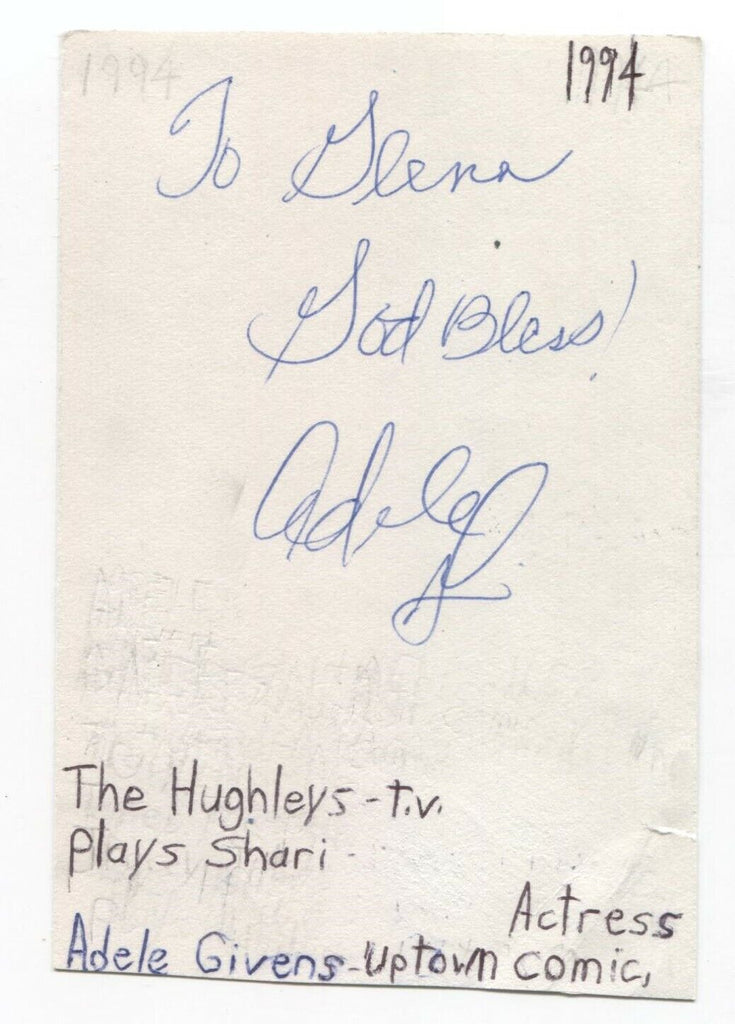 1994 1994
To Glenn
God Bless!
Adele
The Hughleys - t.v.
plays Shari
Actress
Adele Givens - Uptown comic,